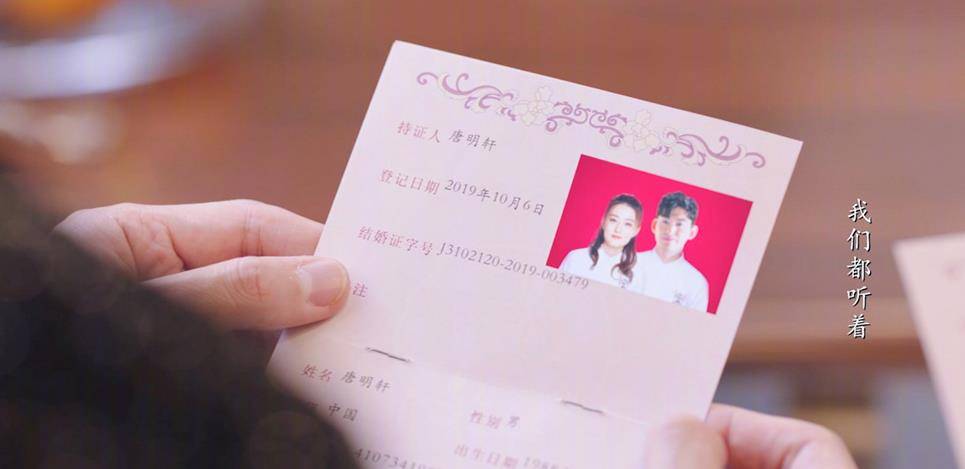 持证人 唐明轩
登记日期 2019年10月6日
结婚证字号 J3102120-2019-003479
注
姓名 唐明轩
中国
性别 男
出生日期
我们都听着